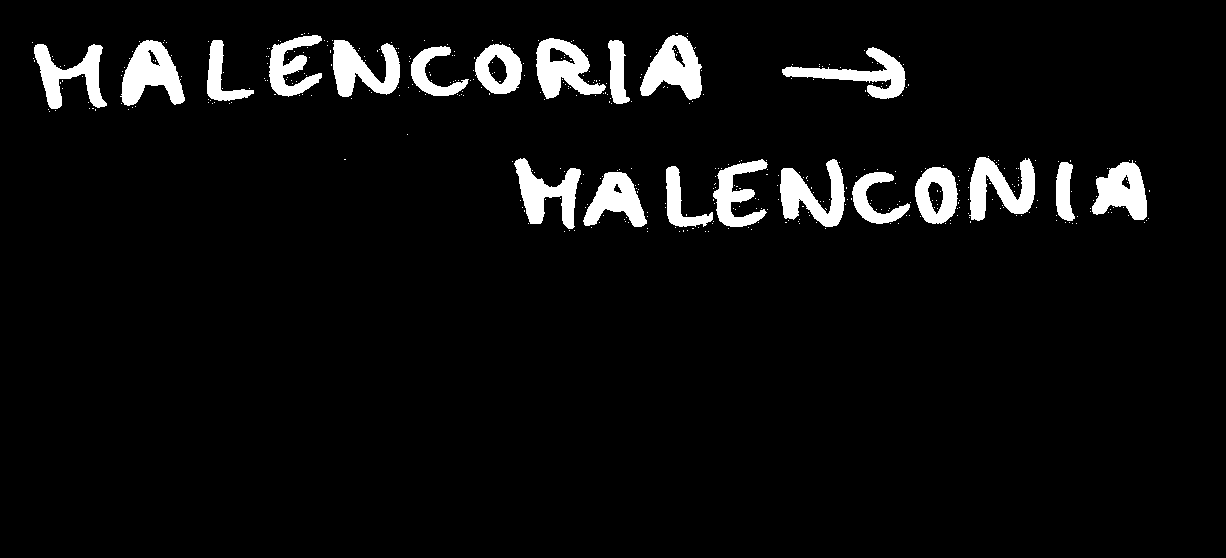 MALENCORIA →
MALENCONIA